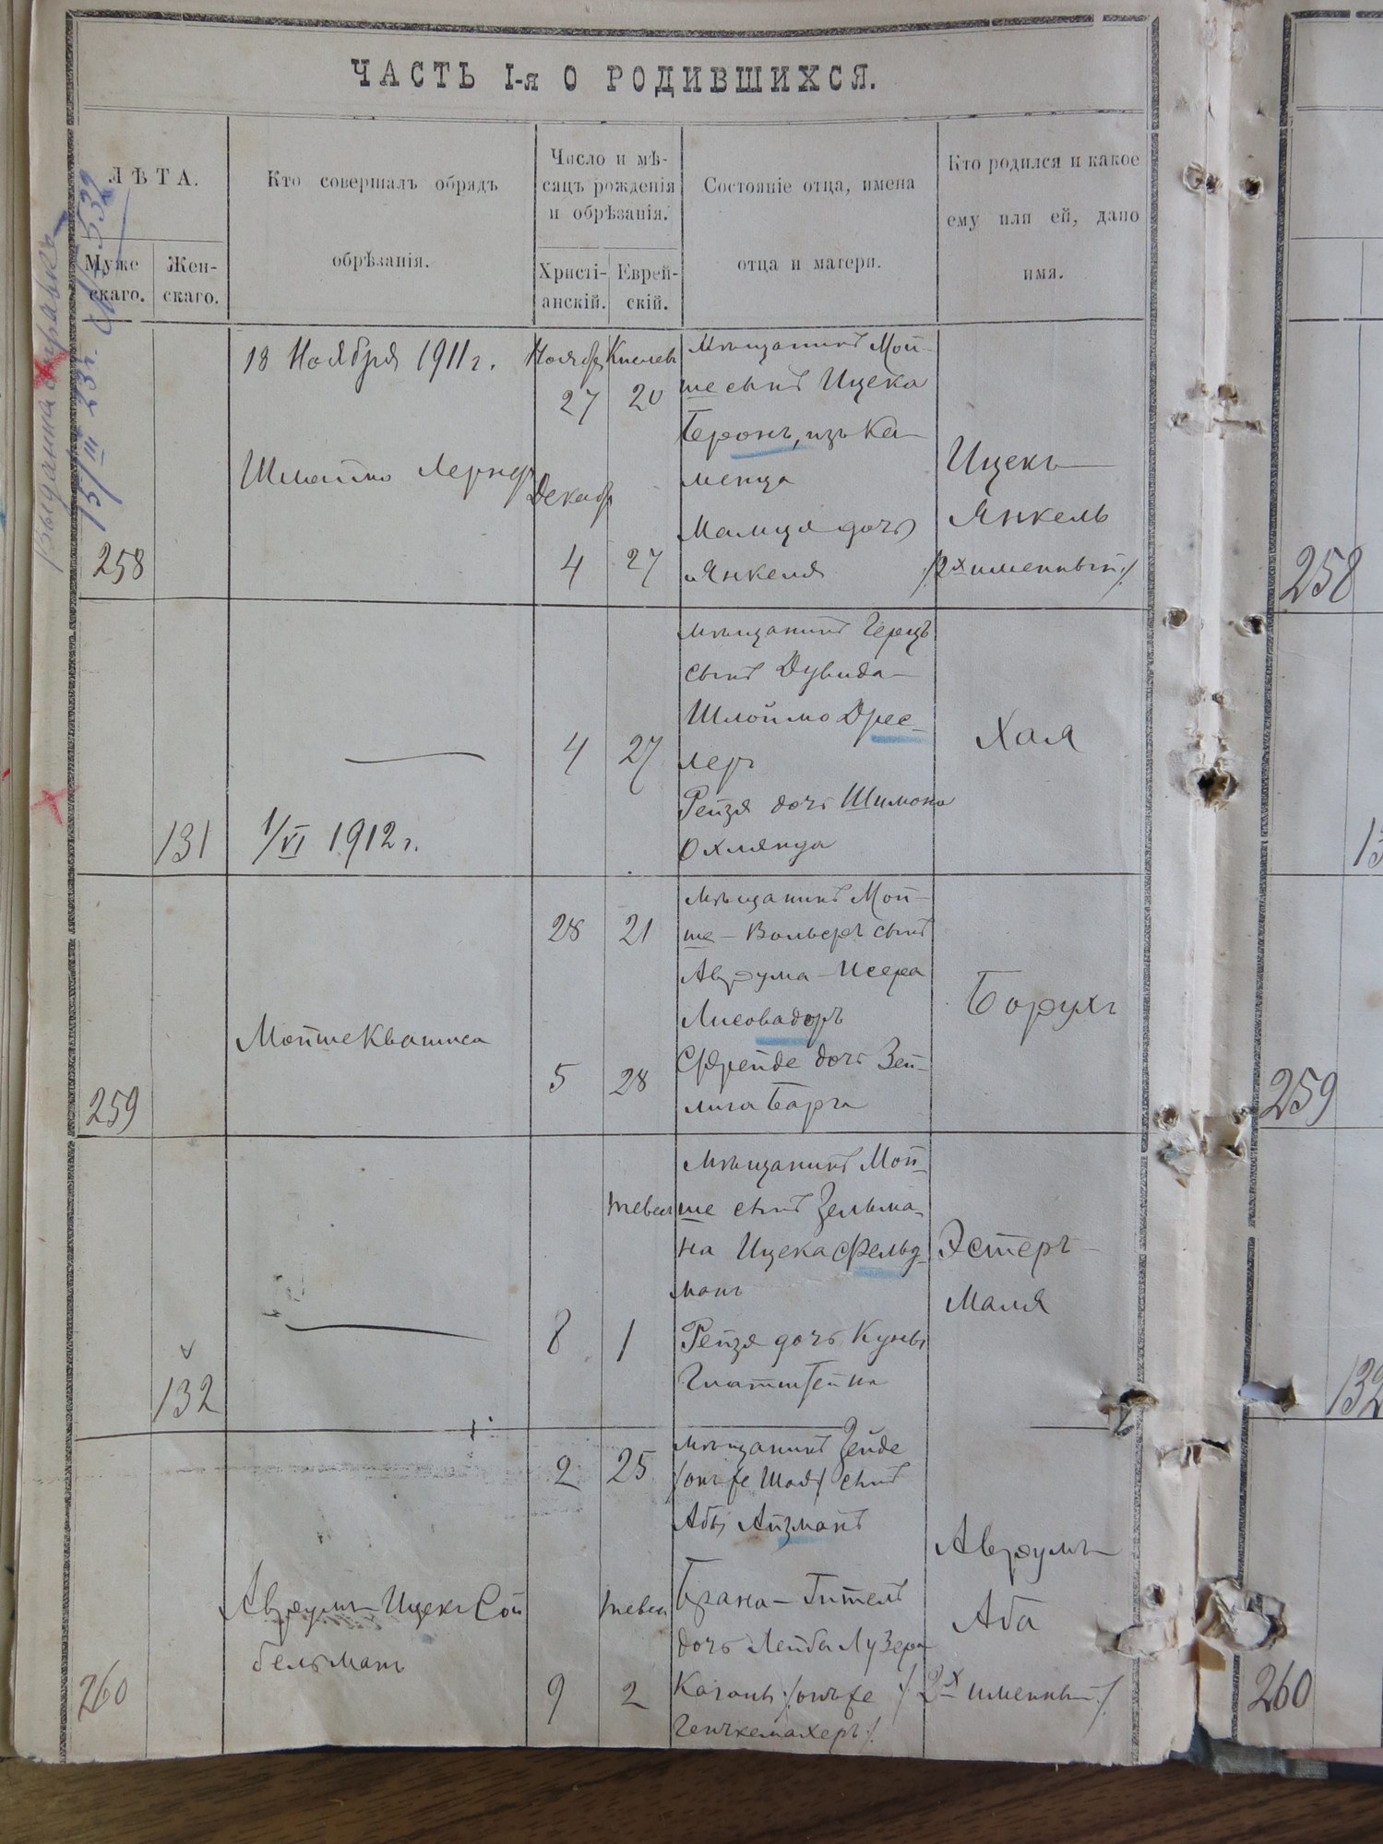 ЧАСТЬ I-я О РОДИВШИХСЯ.
ЛѢТА.
Муже
скаго.
Жен-
скаго.
Кто совершалъ обрядъ
обрѣзанія.
Число и мѣ-
сяцъ рожденія
и обрѣзанія.
Христі-
анскій.
Еврей-
скій.
Состояніе отца, имена
отца и матери.
Кто родился и какое
ему или ей, дано
имя.
Выдана справка
15/III 23 г. № 532
258
18 Ноября 1911 г.
Шлоймо Лернер
Ноября
27
Декабр
4
Кислев
20
27
Мѣщанинъ Мой-
ше сынъ Ицека
Геронъ, изъ Ка-
менца
Малця дочь
Янкеля
Ицекъ
Янкель
/2х именный/
131
1/VI 1912 г.
4
27
Мѣщанинъ Герцъ
сынъ Дувида-
Шлоймо Дрес-
леръ
Рейзя дочь Шимона
Охлянда
Хая
259
Мойше Квашиса
28
21
5
28
Мѣщанинъ Мой-
ше-Вольфъ сынъ
Аврума-Исера
Лисоводеръ
Фрейде дочь Зей-
лига Барга
Борухъ
132
8
тевес
1
Мѣщанинъ Мой-
ше сынъ Зельма-
на Ицека Фельд-
манъ
Рейзя дочь Куны
Глатштейна
Эстеръ-
Маля
260
Аврумъ-Ицекъ Сой
бельманъ
2
25
9
тевес
2
Мѣщанинъ Зейде
/онъ же Шая/ сынъ
Абы Айзманъ
Брана-Гитель
дочь Лейбы Лузера
Каганъ /онъ же
Генчкемахеръ/
Аврумъ-
Аба
/2х именный/
258
259
132
260